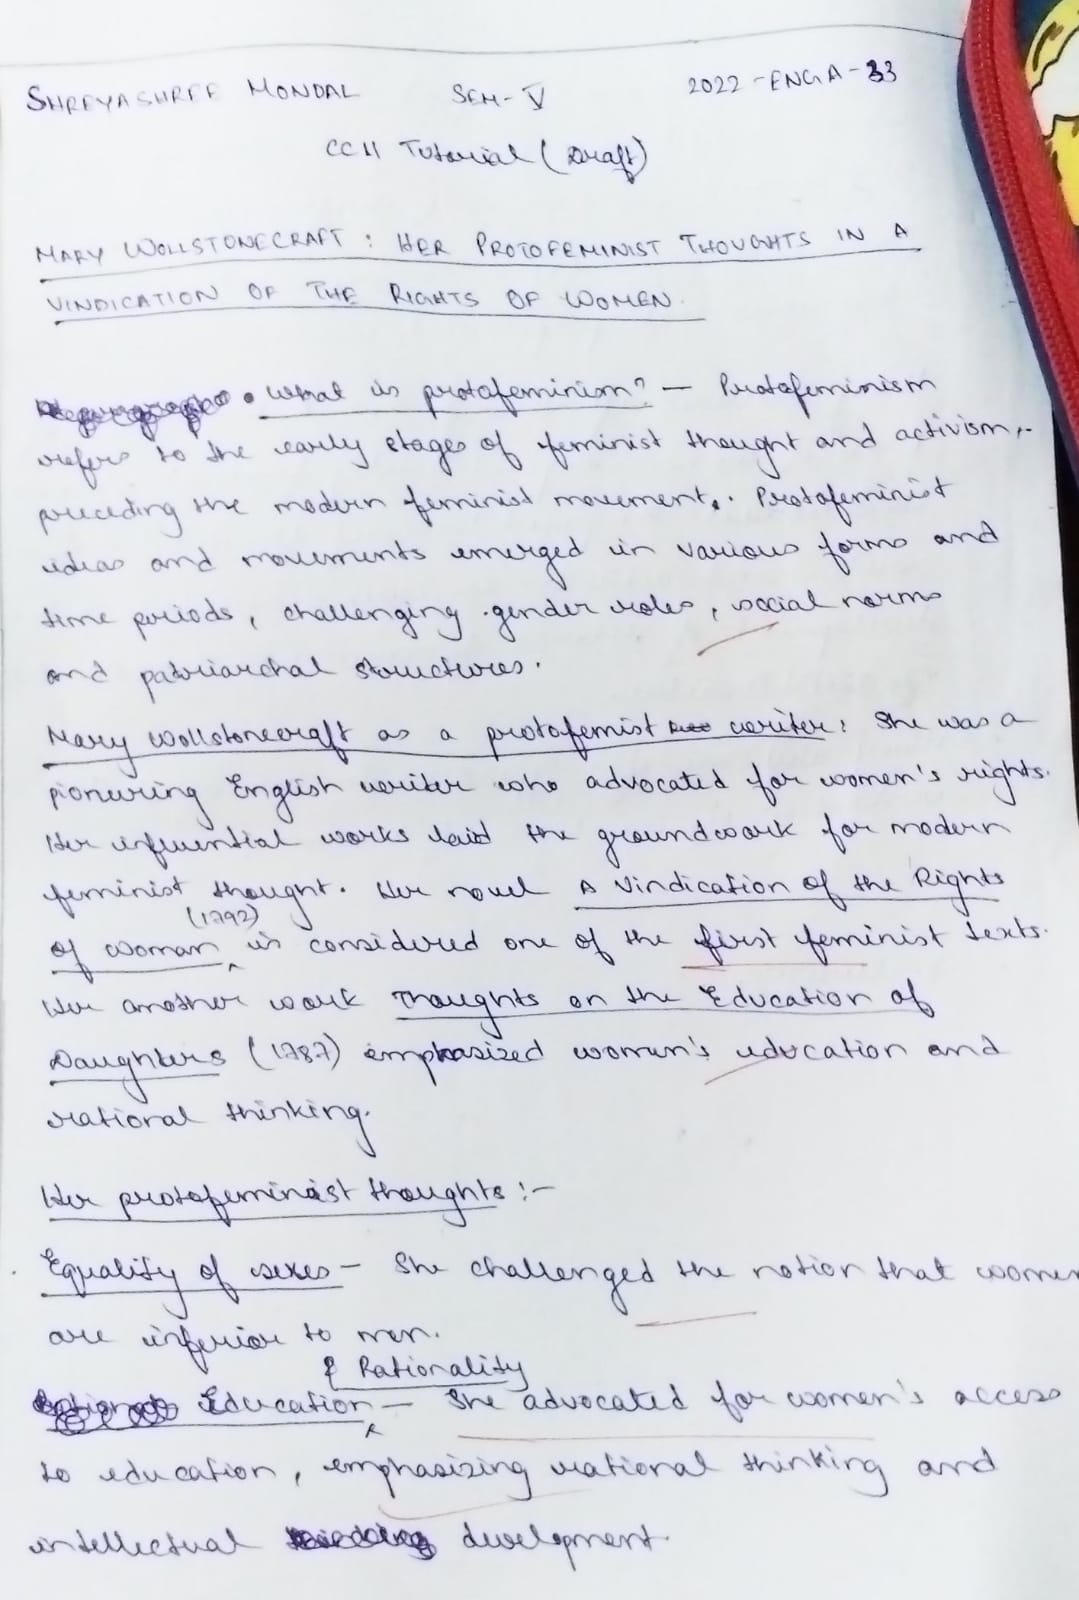 SHREYASHREE MONDAL SEM-V 2022-ENGA-33
CC11 Tutorial (Draft)
MARY WOLLSTONECRAFT : HER PROTOFEMINIST THOUGHTS IN A
VINDICATION OF THE RIGHTS OF WOMEN.
• What is protofeminism? — Protofeminism
refers to the early stages of feminist thought and activism,
preceding the modern feminist movement. Protofeminist
ideas and movements emerged in various forms and
time periods, challenging gender roles, social norms
and patriarchal structures.
Mary Wollstonecraft as a protofemist writer: She was a
pioneering English writer who advocated for women's rights.
Her influential works laid the groundwork for modern
feminist thought. Her novel A Vindication of the Rights
of Woman (1792) is considered one of the first feminist texts.
Her another work Thoughts on the Education of
Daughters (1787) emphasized women's education and
rational thinking.
Her protofeminist thoughts :-
Equality of sexes — She challenged the notion that women
are inferior to men.
Education & Rationality — She advocated for women's access
to education, emphasizing rational thinking and
intellectual development.